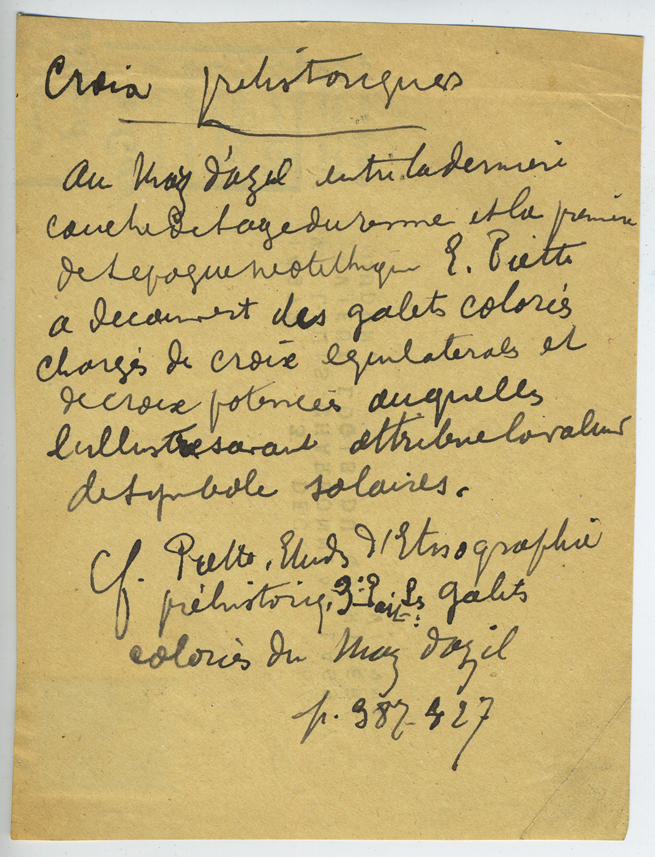 Croix préhistoriques
Au Maz d'azil entre la dernière
couche de l'age du renne et la première
de l'epoque neolithique E. Piette
a decouvert des galets coloriés
chargés de croix equilaterales et
de croix potencées auquelles
l'illustre savant attribue la valeur
de symbole solaires.
Cf. Piette, Etudes d'Etnographie
préhistoriq. 3e: Part: Les galets
coloriés du Maz d'azil
p. 387-427